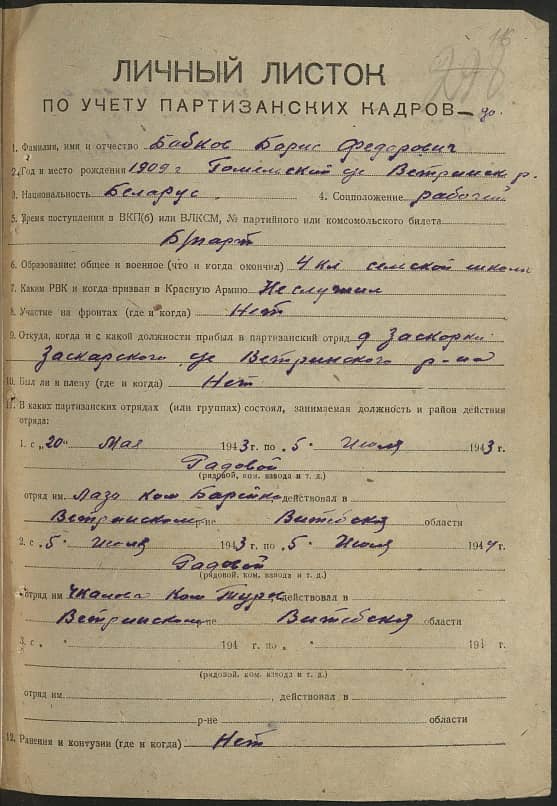 16
ЛИЧНЫЙ ЛИСТОК
ПО УЧЕТУ ПАРТИЗАНСКИХ КАДРОВ
1. Фамилия, имя и отчество Бабков Борис Федорович
2. Год и место рождения 1909 г Ветринск р.
3. Национальность Беларус 4. Соцположение рабочий
5. Время поступления в ВКП(б) или ВЛКСМ, № партийного или комсомольского билета
Б/парт
6. Образование: общее и военное (что и когда окончил) 4 кл школы
7. Каким РВК и когда призван в Красную Армию Не служил
8. Участие на фронтах (где и когда) Нет
9. Откуда, когда и с какой должности прибыл в партизанский отряд д Заскорки
Заскарского Ветринского р-на
10. Был ли в плену (где и когда) Нет
11. В каких партизанских отрядах (или группах) состоял, занимаемая должность и район действия
отряда:
1. с „20" Мая 1943 г. по „5" Июля 1943 г.
Радовой
(рядовой, ком. взвода и т. д.)
отряд им. Лазо Ком действовал в
Ветринском р-не Витебской области
2. с „5" Июля 1943 г. по „5" Июля 1944 г.
Радовой
(рядовой, ком. взвода и т. д.)
отряд им. Чкалова Ком действовал в
Ветринском р-не Витебской области
3. с „ " 194 г. по „ " 194 г.
(рядовой, ком. взвода и т. д.)
отряд им. , действовал в
р-не области
12. Ранения и контузии (где и когда) Нет